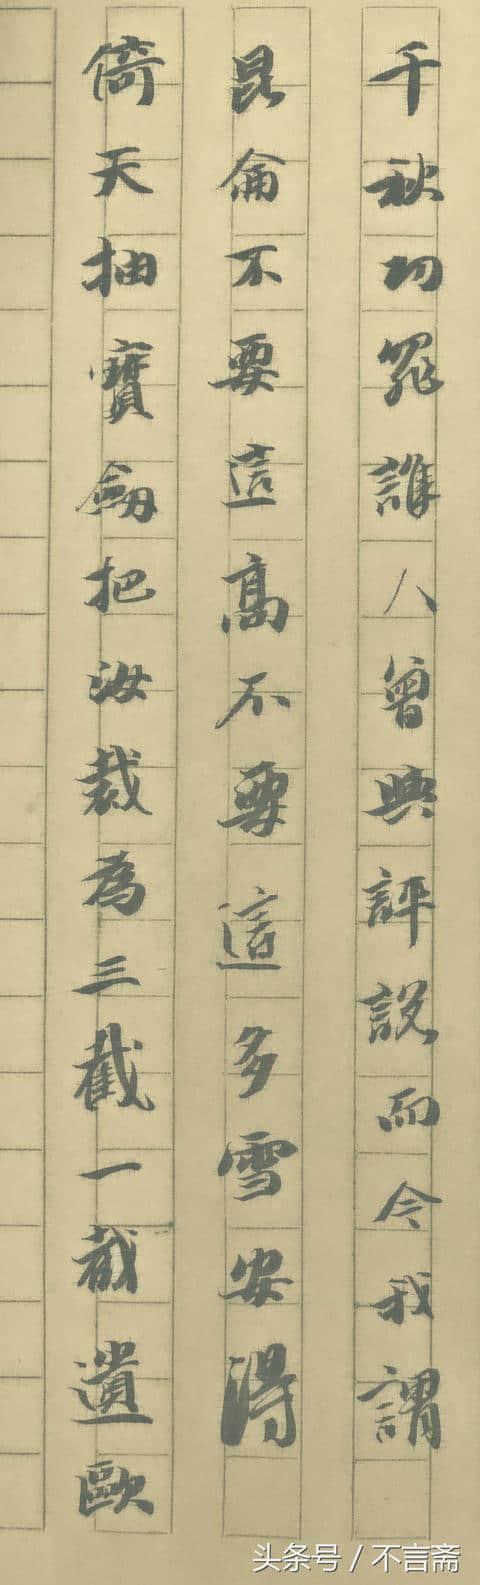 千秋功罪誰人曾與評説而今我謂
昆侖不要這高不要這多雪安得
倚天抽寶劍把汝裁為三截一截遺歐
头条号 / 不言斋